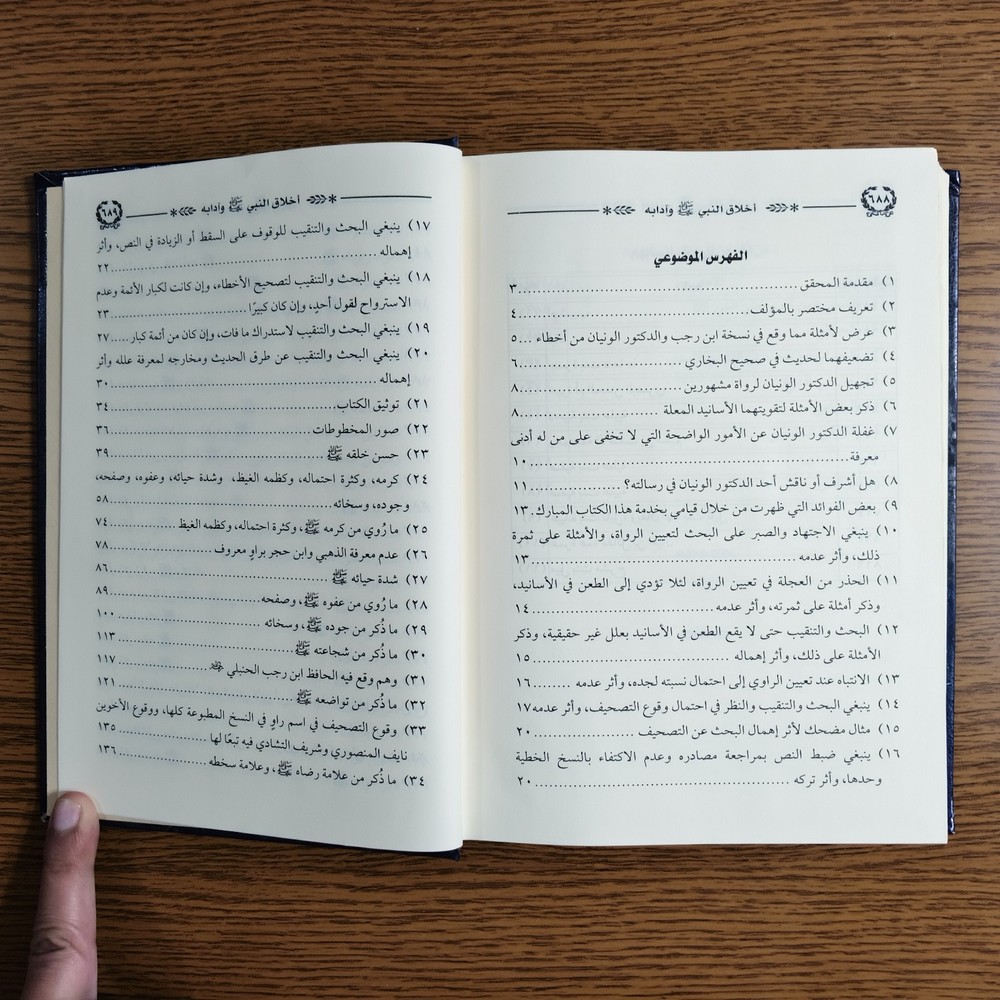 ٦٨٨ أخلاق النبي ﷺ وآدابه
الفهرس الموضوعي
١) مقدمة المحقق ................ ٣
٢) تعريف مختصر بالمؤلف ................ ٤
٣) عرض لأمثلة مما وقع في نسخة ابن رجب والدكتور الونيان من أخطاء ... ٥
٤) تضعيفهما لحديث في صحيح البخاري ................ ٦
٥) تجهيل الدكتور الونيان لرواة مشهورين ................ ٨
٦) ذكر بعض الأمثلة لتقويتهما الأسانيد المعلة ................ ٨
٧) غفلة الدكتور الونيان عن الأمور الواضحة التي لا تخفى على من له أدنى
معرفة ................ ١٠
٨) هل أشرف أو ناقش أحد الدكتور الونيان في رسالته؟ ................ ١١
٩) بعض الفوائد التي ظهرت من خلال قيامي بخدمة هذا الكتاب المبارك. ١٣
١٠) ينبغي الاجتهاد والصبر على البحث لتعيين الرواة، والأمثلة على ثمرة
ذلك، وأثر عدمه ................ ١٣
١١) الحذر من العجلة في تعيين الرواة، لئلا تؤدي إلى الطعن في الأسانيد،
وذكر أمثلة على ثمرته، وأثر عدمه ................ ١٤
١٢) البحث والتنقيب حتى لا يقع الطعن في الأسانيد بعلل غير حقيقية، وذكر
الأمثلة على ذلك، وأثر إهماله ................ ١٥
١٣) الانتباه عند تعيين الراوي إلى احتمال نسبته لجده، وأثر عدمه ........ ١٦
١٤) ينبغي البحث والتنقيب والنظر في احتمال وقوع التصحيف، وأثر عدمه ١٧
١٥) مثال مضحك لأثر إهمال البحث عن التصحيف ................ ٢٠
١٦) ينبغي ضبط النص بمراجعة مصادره وعدم الاكتفاء بالنسخ الخطية
وحدها، وأثر تركه ................ ٢٠
أخلاق النبي ﷺ وآدابه ٦٨٩
١٧) ينبغي البحث والتنقيب للوقوف على السقط أو الزيادة في النص، وأثر
إهماله ................ ٢٢
١٨) ينبغي البحث والتنقيب لتصحيح الأخطاء، وإن كانت لكبار الأئمة وعدم
الاسترواح لقول أحدٍ، وإن كان كبيرًا ................ ٢٣
١٩) ينبغي البحث والتنقيب لاستدراك ما فات، وإن كان من أئمة كبار ..... ٢٧
٢٠) ينبغي البحث والتنقيب عن طرق الحديث ومخارجه لمعرفة علله وأثر
إهماله ................ ٣٠
٢١) توثيق الكتاب ................ ٣٤
٢٢) صور المخطوطات ................ ٣٦
٢٣) حسن خلقه ﷺ ................ ٣٩
٢٤) كرمه، وكثرة احتماله، وكظمه الغيظ، وشدة حيائه، وعفوه، وصفحه،
وجوده، وسخائه ................ ٥٨
٢٥) ما رُوي من كرمه ﷺ، وكثرة احتماله، وكظمه الغيظ ................ ٧٤
٢٦) عدم معرفة الذهبي وابن حجر براوٍ معروف ................ ٧٨
٢٧) شدة حيائه ﷺ ................ ٨٦
٢٨) ما رُوي من عفوه ﷺ، وصفحه ................ ٨٩
٢٩) ما ذُكر من جوده ﷺ، وسخائه ................ ١٠٠
٣٠) ما ذُكر من شجاعته ﷺ ................ ١١٣
٣١) وهم وقع فيه الحافظ ابن رجب الحنبلي ................ ١١٧
٣٢) ما ذُكر من تواضعه ﷺ ................ ١٢١
٣٣) وقوع التصحيف في اسم راوٍ في النسخ المطبوعة كلها، ووقوع الأخوين
نايف المنصوري وشريف التشادي فيه تبعًا لها ................ ١٣٥
٣٤) ما ذُكر من علامة رضاه ﷺ، وعلامة سخطه ................ ١٣٦